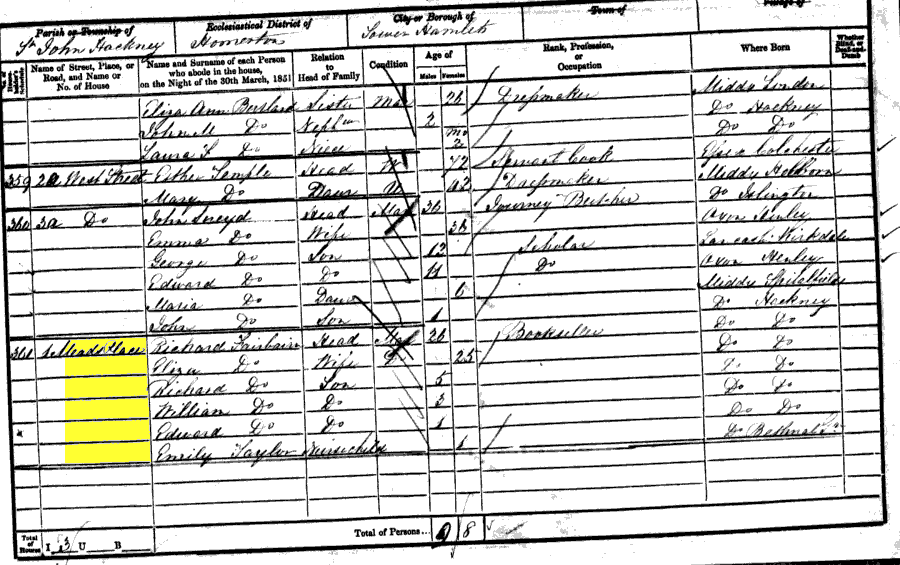 Parish or Township of Ecclesiastical District of City or Borough of Town of Village of
St John Hackney Homerton Tower Hamlets
Name of Street, Place, or Road, and Name or No. of House
Name and Surname of each Person who abode in the house, on the Night of the 30th March, 1851
Relation to Head of Family
Condition
Age of
Males Females
Rank, Profession, or Occupation
Where Born
Whether Blind, or Deaf-and-Dumb
Eliza Ann Sister Mar 26 Dressmaker Middx London
Do Neph 2 Do Hackney
Laura Do Niece 2 mo Do Do
359 2a West Street Esther Temple Head W 72 Servant Cook Essex Colchester
Mary Do Daur U 42 Dressmaker Middx Holborn
360 3a Do John Head Mar 36 Journey Do Islington
Emma Do Wife 36 Oxon Henley
George Do Son 12 Scholar Lancash. Kirkdale
Edward Do Do 11 Do Oxon Henley
Maria Do Daur 6 Middx Spitalfields
John Do Son 1 Do Hackney
361 1 Meads Place Richard Fairbairn Head Mar 26 Bookseller Do Do
Eliza Do Wife 25 Do Do
Richard Do Son 5 Do Do
William Do Do 3 Do Do
Edward Do Do 1 Do Do
Emily Taylor Nursechild 1 Do Bethnal Gn
Total of Houses I 3 U B Total of Persons... 9 8